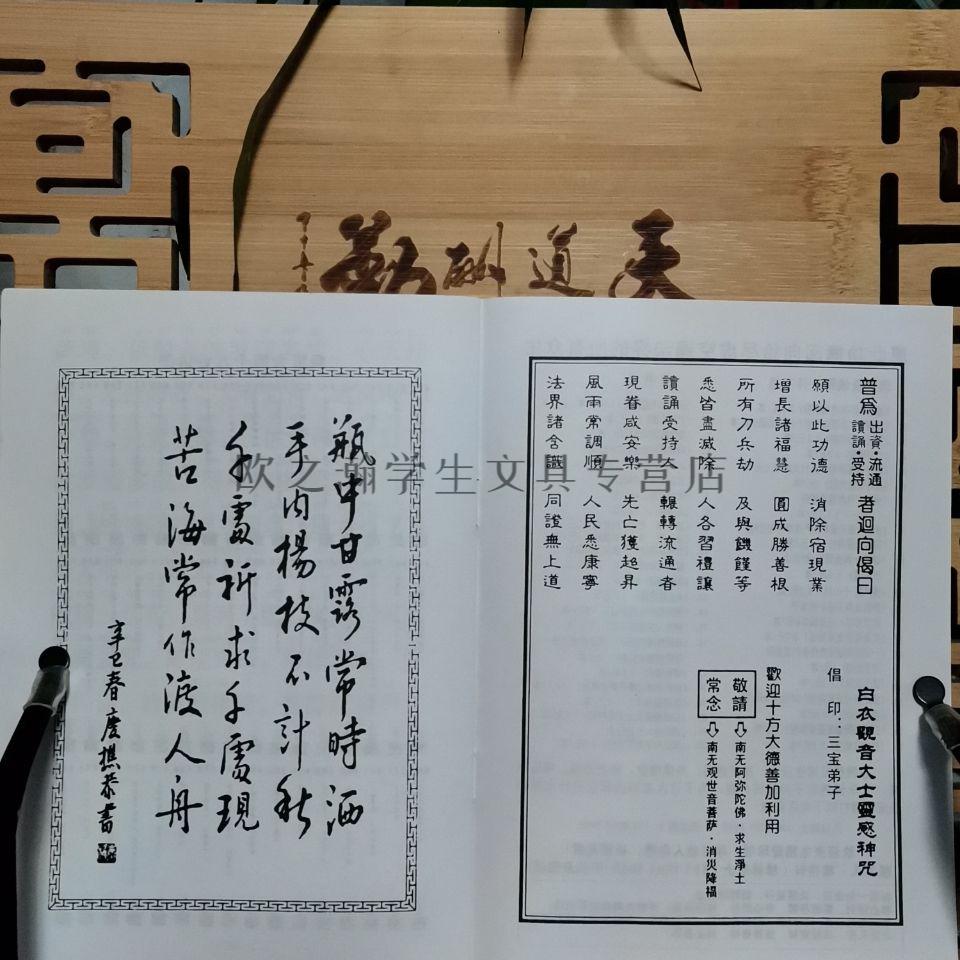 天道酬勤
普為出資·流通讀誦·受持者迴向偈曰
願以此功德 消除宿現業
增長諸福慧 圓成勝善根
所有刀兵劫 及與饑饉等
悉皆盡滅除 人各習禮讓
讀誦受持人 輾轉流通者
現眷咸安樂 先亡獲超昇
風雨常調順 人民悉康寧
法界諸含識 同證無上道
白衣觀音大士靈感神咒
倡 印：三宝弟子
歡迎十方大德善加利用
敬請⇨南无阿弥陀佛·求生淨土
常念⇨南无观世音菩萨·消災降福
瓶中甘露常時洒
手内楊枝不計秋
千處祈求千處現
苦海常作渡人舟
辛巳春 度樵恭書
欧之瀚学生文具专营店